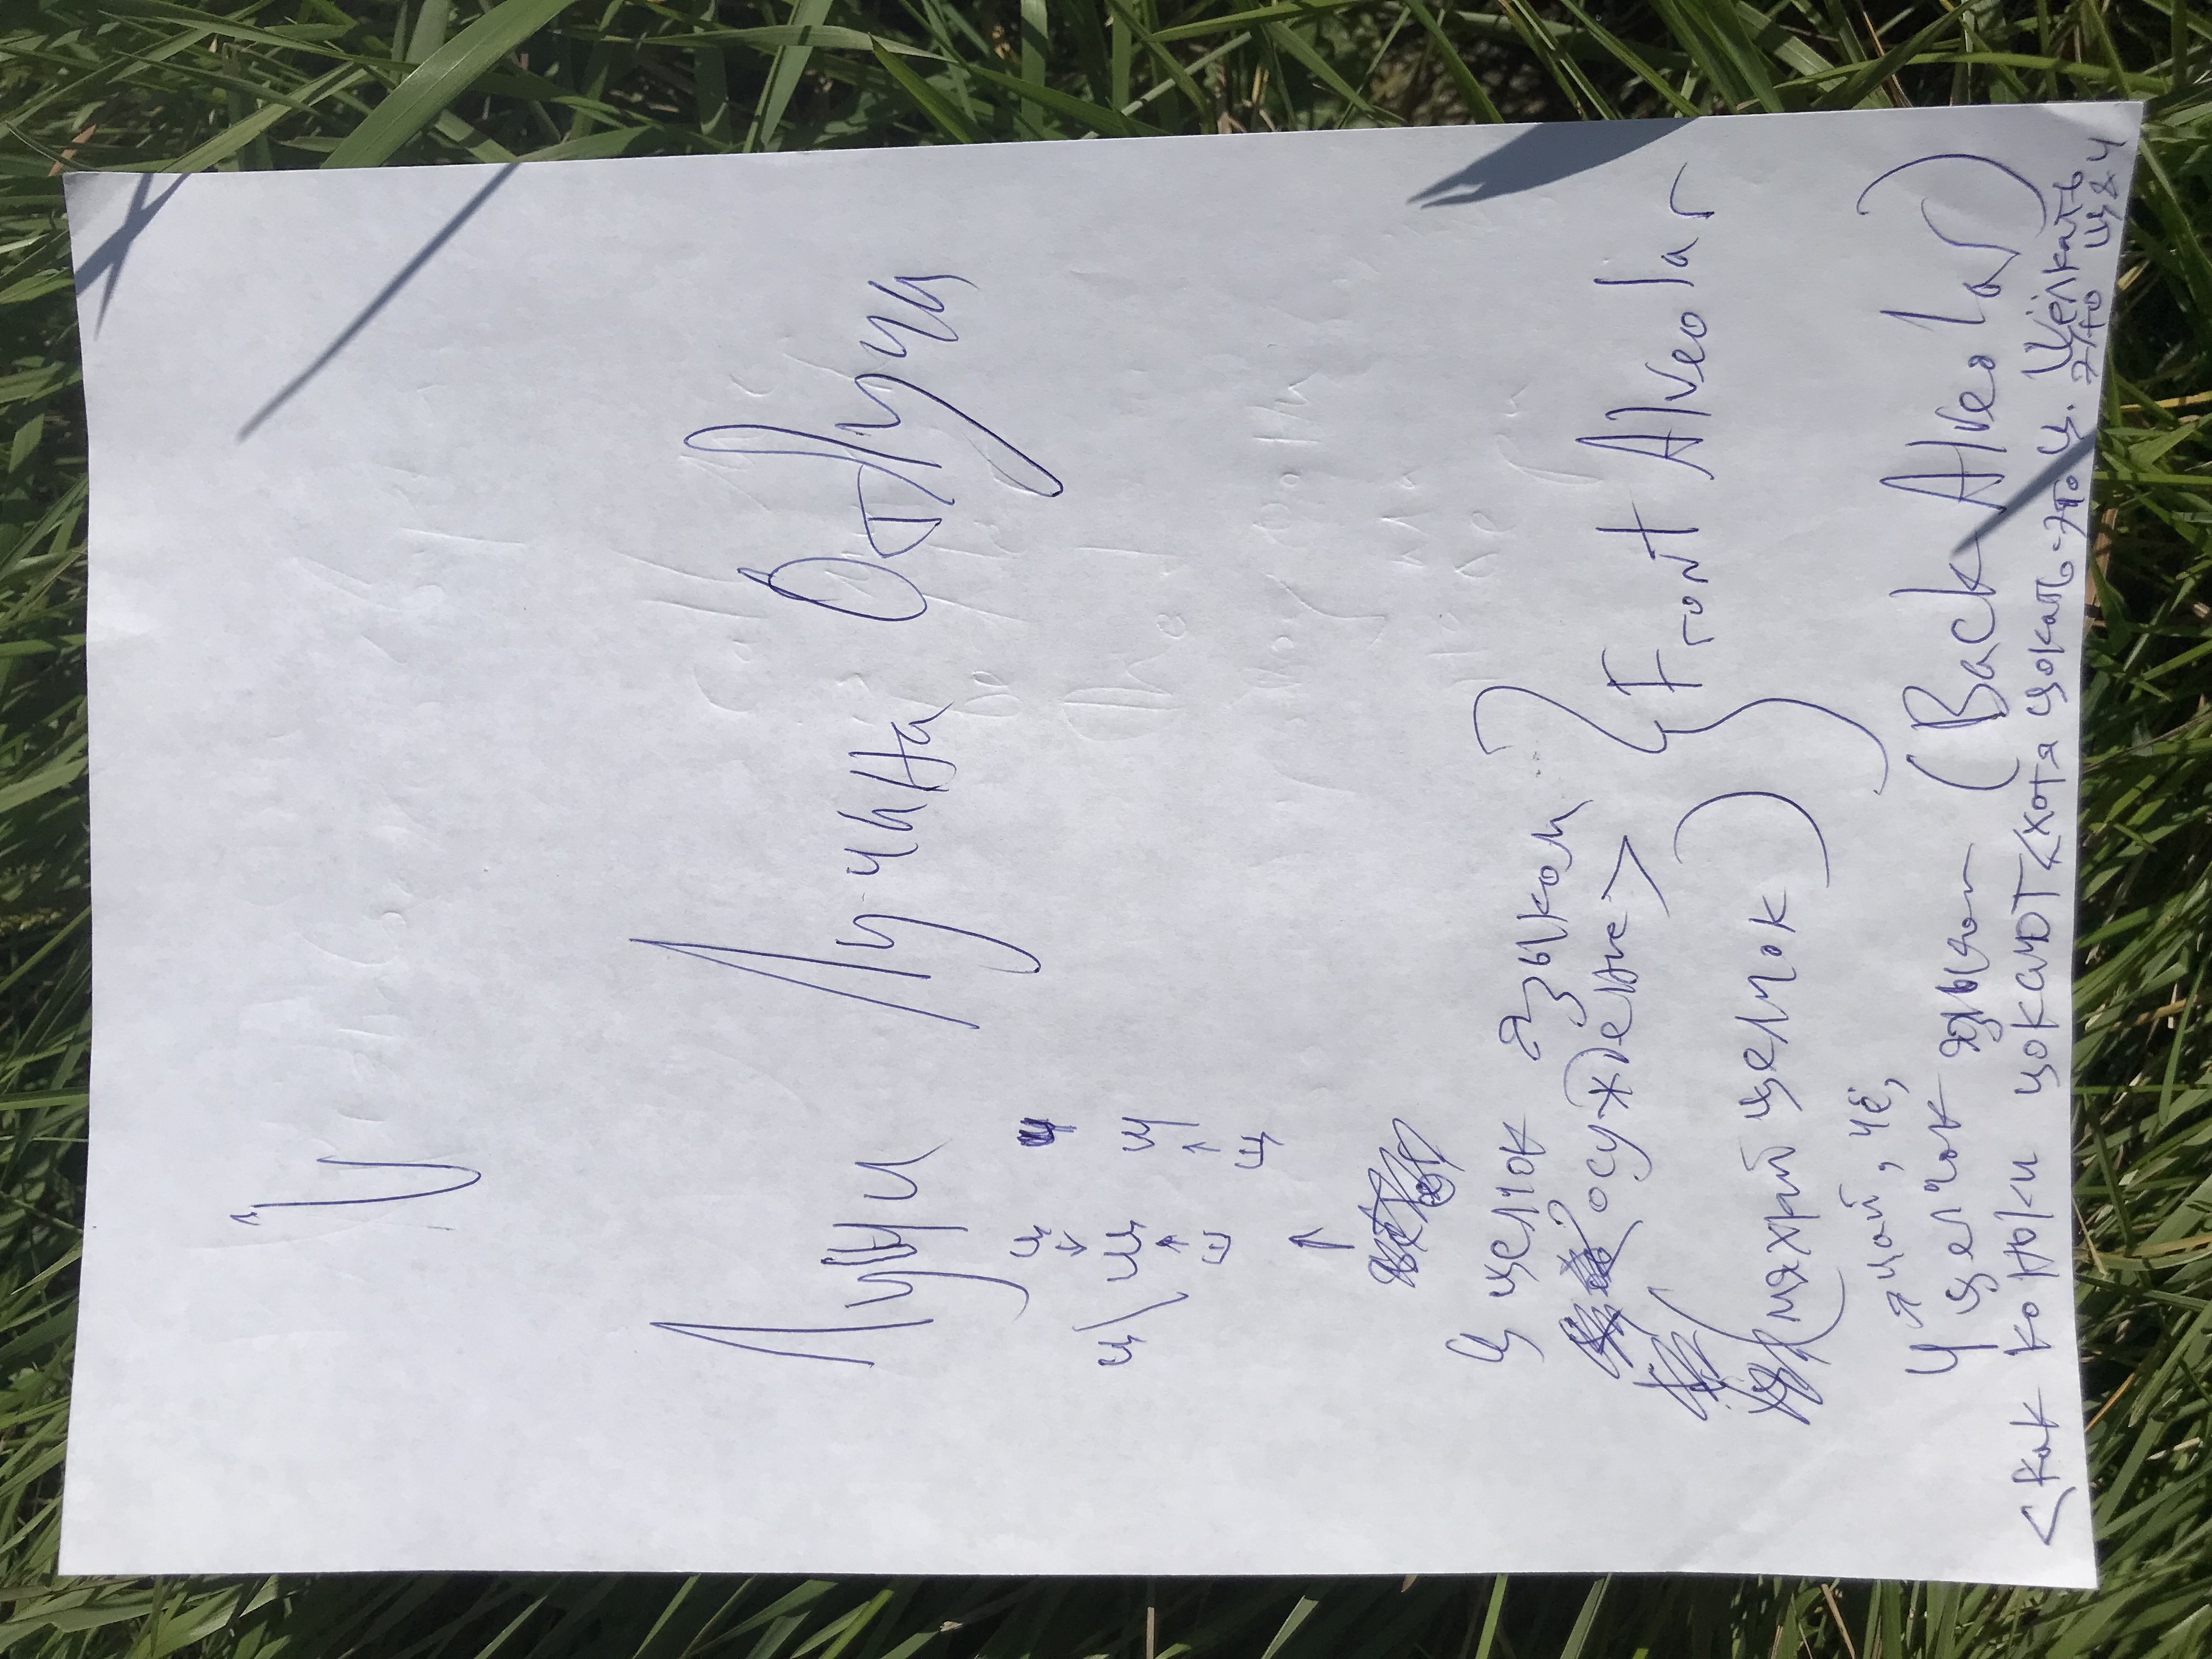 Лучи Лучина ОтЛуча
ц
ц щ
Ц щелчок языком
осуждение>
(мяхкий щелчок)
Front Alveolar
чай, чё,
Ч щелчок языком (Back Alveolar)
<как коньки цокают <хотя цокать - это ц. Щёлкать
это щ & ч